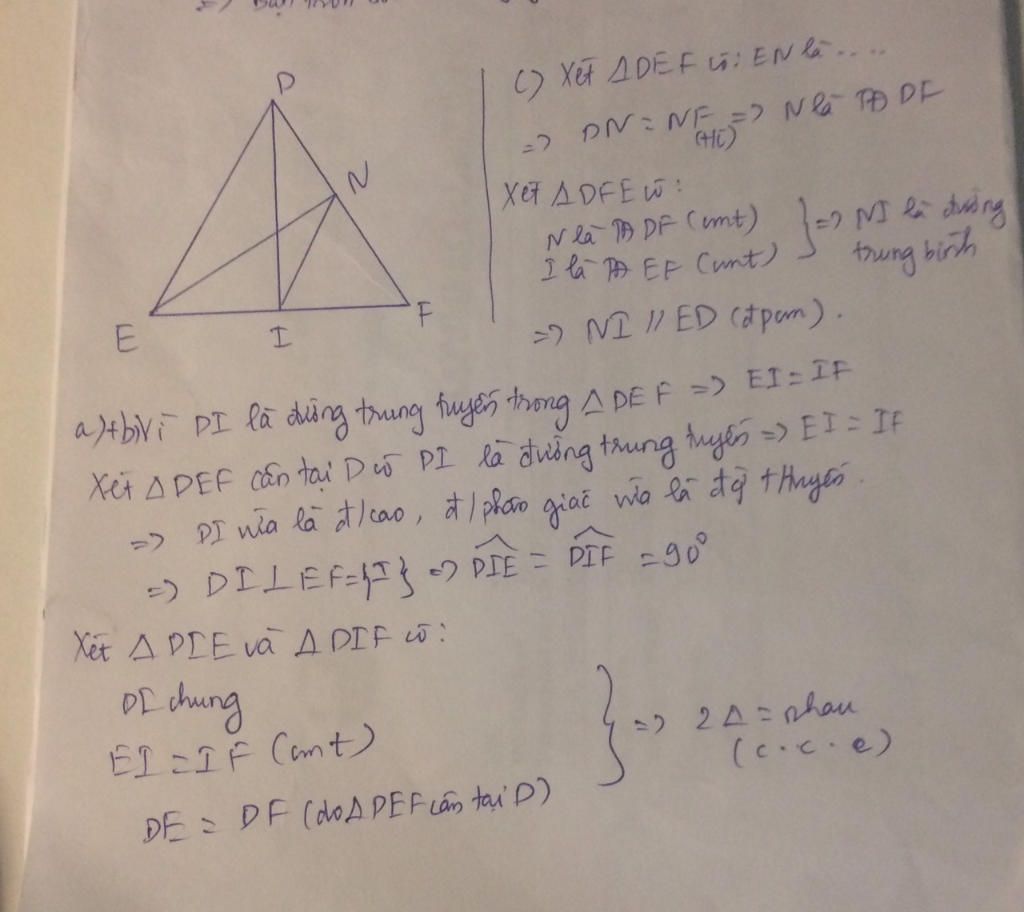 D
N
E
I
F
c) Xét ΔDEF có: EN là ....
=> DN = NF => N là TĐ DF
(t/c)
Xét ΔDFE có:
N là TĐ DF (cmt)
I là TĐ EF (cmt)
} => NI là đường
trung bình
=> NI // ED (đpcm).
a)+b) Vì DI là đường trung tuyến trong Δ DEF => EI = IF
Xét Δ DEF cân tại D có DI là đường trung tuyến => EI = IF
=> DI vừa là đ/cao, đ/phân giác vừa là
=> DI ⊥ EF = {I} => \widehat{DIE} = \widehat{DIF} = 90°
Xét Δ DIE và Δ DIF có:
DI chung
EI = IF (cmt)
DE = DF (do Δ DEF cân tại D)
} => 2 Δ = nhau
(c.c.c)